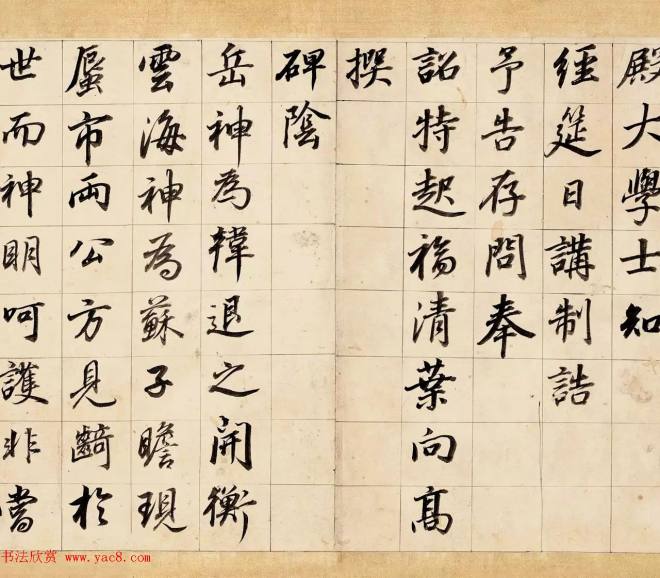 殿大學士知
經筵日講制誥
予告存問奉
詔特起福清葉向高
撰
碑陰
岳神為韓退之開衡
雲海神為蘇子瞻現
蜃市兩公方見齮於
世而神明呵護非當
书法欣赏 www.yac8.com